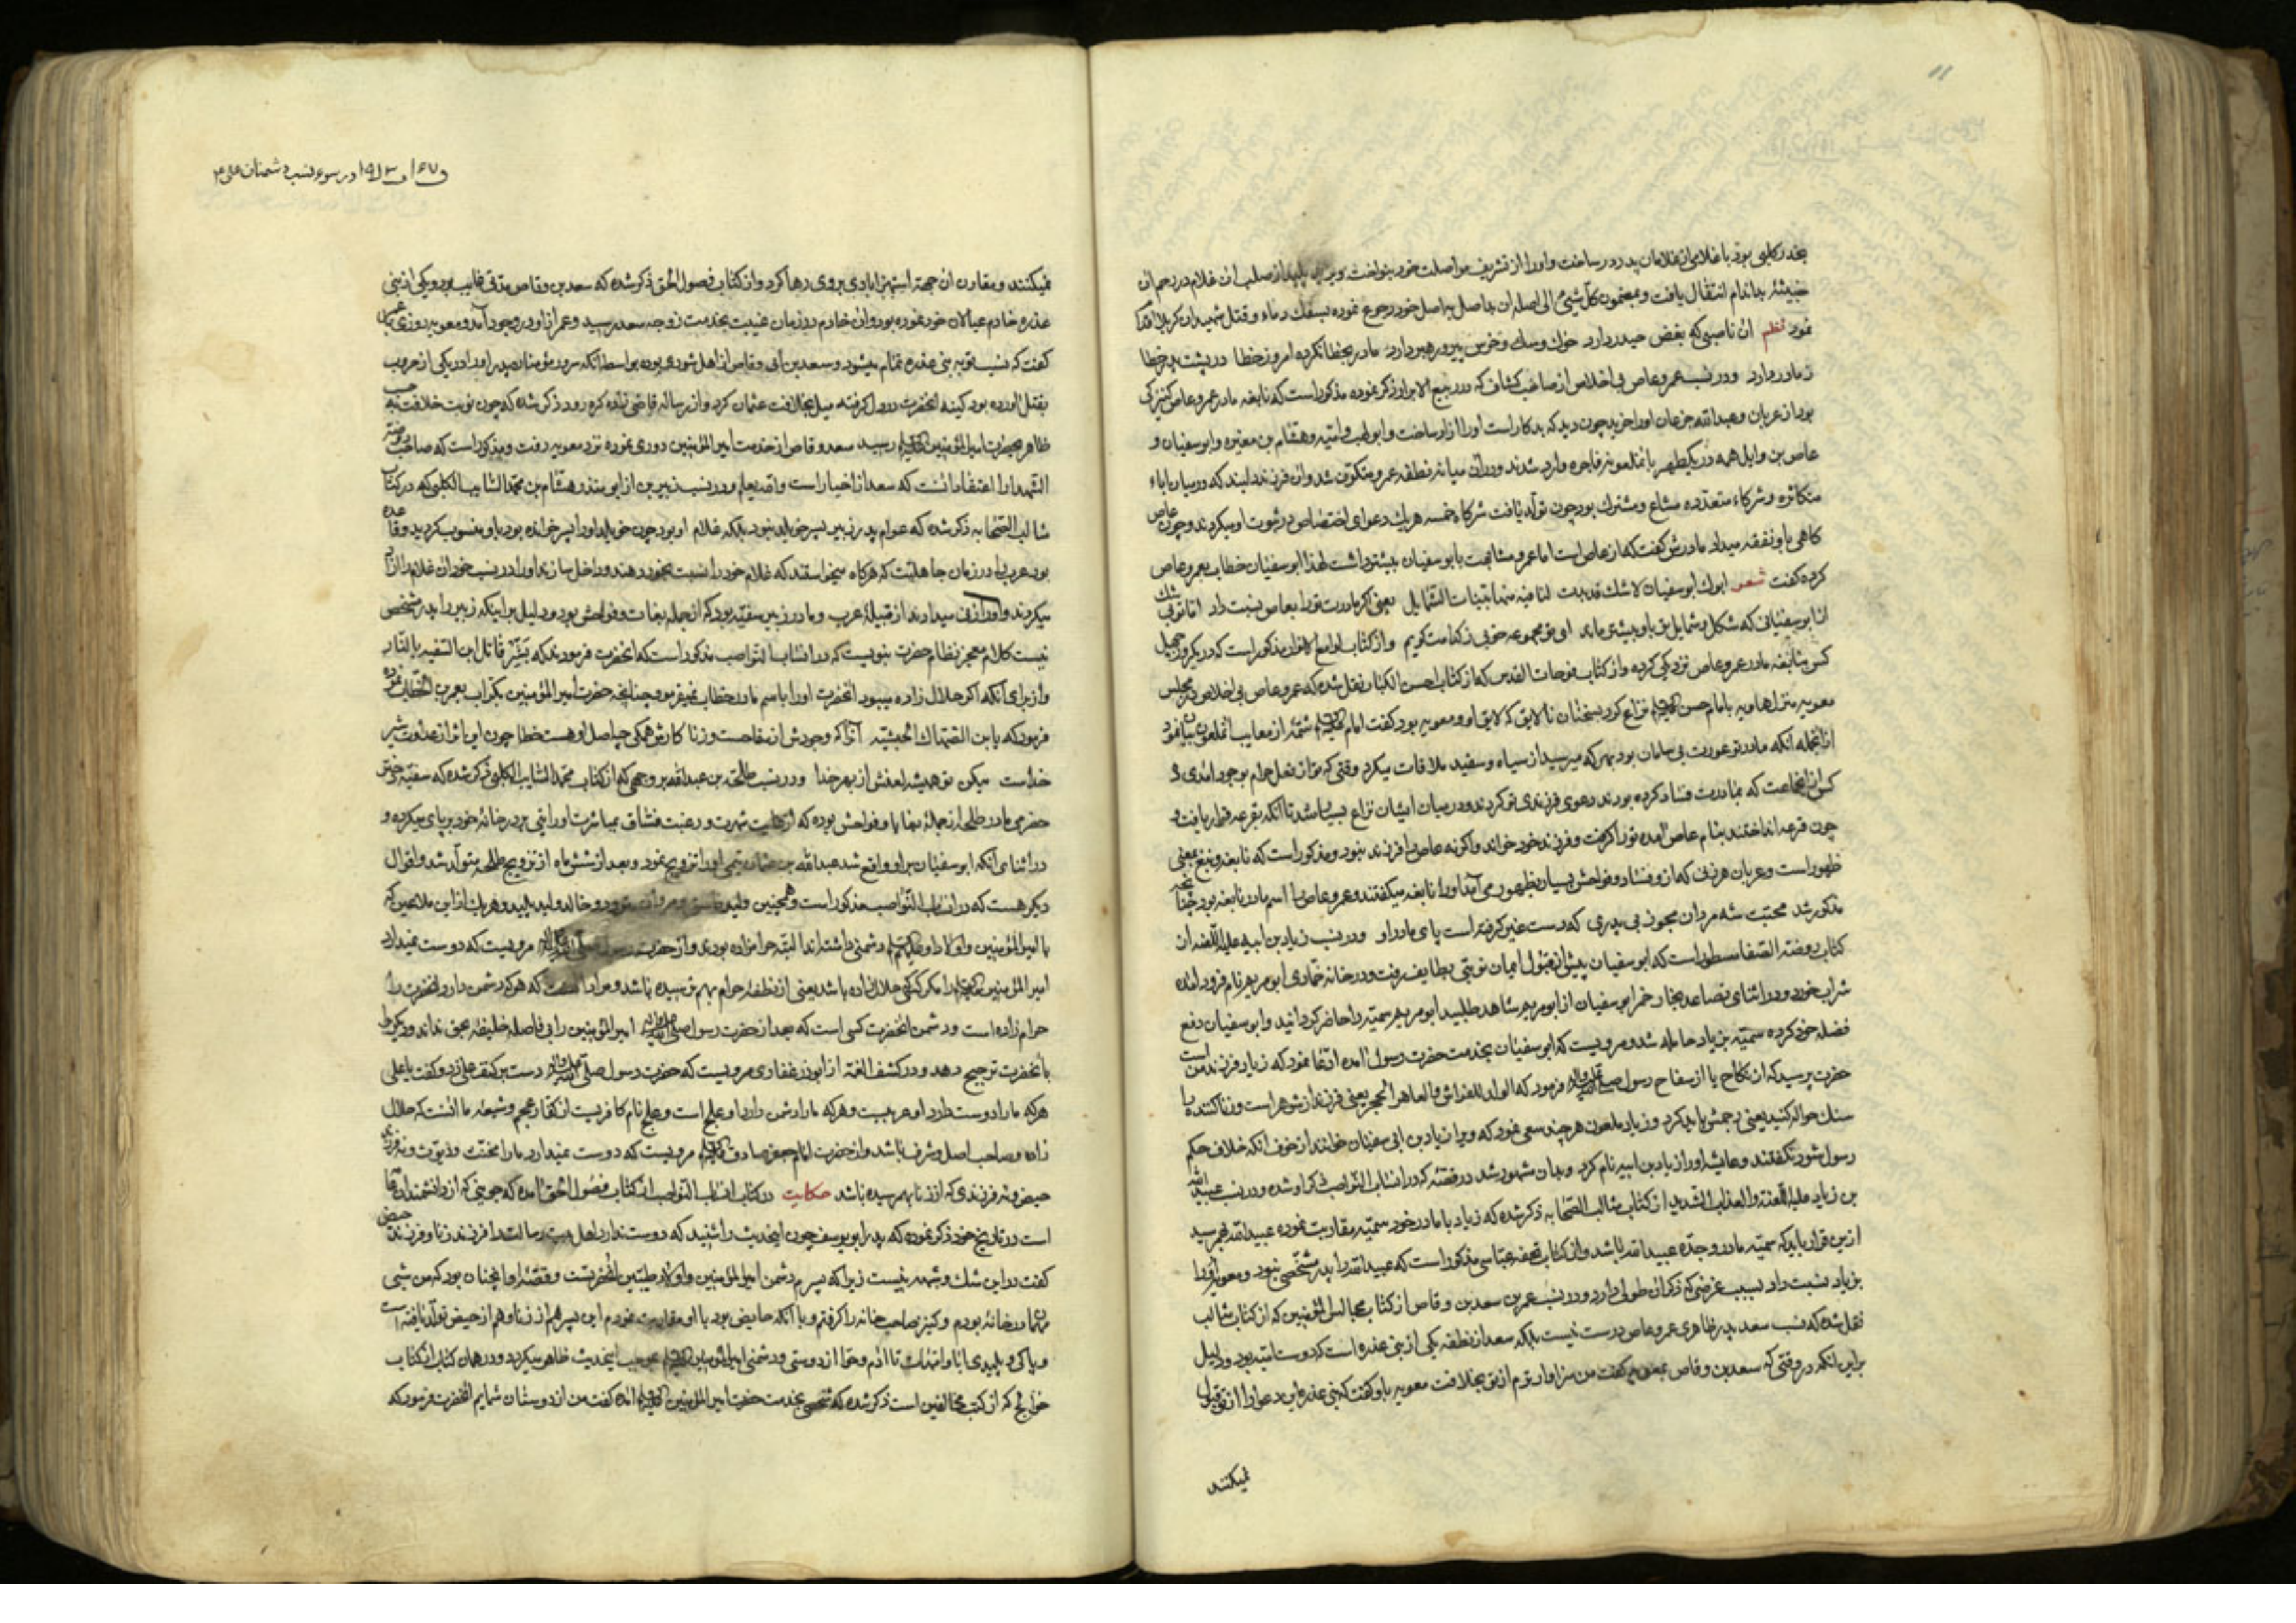 بخدر کلبی بود با غلامی از غلامان پدر در ساخت و او را از تشریف مواصلت خود بنواخت و یزید پلید از صلب ان غلام در رحم ان
خبیثهٔ بداندام انتقال یافت و بمضمون کل شیء الی اصله ان بداصل به اصل خود رجوع نموده بسفک دماء و قتل شهیدان کربلا اقدا
نمود نظم ان ناصبی که بغض حیدر دارد خوک و سک و خرس پیر و رهبر دارد مادر بخطا نکرده امروز خطا در پشت پدر خطا
ز مادر دارد و در نسب عمرو عاص بی اخلاص از صاحب کشاف که در ربیع الابرار ذکر نموده مذکور است که نابغه مادر عمرو عاص کنیزکی
بود از عربان و عبدالله جزعان او را خرید چون دید که بدکار است او را ازاد ساخت و ابولهب و امیه و هشام بن مغیره و ابوسفیان و
عاص بن وایل همه در یکطهر با نملعونه فاجره وارد شدند و در ان میانه نطفه عمرو متکون شد و ان فرزند بلید که در میان اباء
متکاثره و شرکاء متعدده مشاع و مشترک بود چون تولد یافت شرکاء خمسه هریک دعوای اختصاص در ثبوت او میکردند و چون عاص
کاهی باو نفقه میداد مادرش کفت که از عاص است اما عمرو مشابهت بابوسفیان بیشتر داشت لهذا ابوسفیان خطاب بعمرو عاص
کرده کفت شعر ابوک ابوسفیان لا شک قد بدت لنا فیه منها بینات الشمایل یعنی اکر مادرت تو را بعاص نسبت داد اما تو بی شک
از ابوسفیانی که شکل و شمایل تو باو بیشتر ماند ای تو مجموعه خوبی ز کدامت کویم و از کتاب لوامع الانوار مذکور است که در یکروز چهل
کس بنابغه مادر عمرو عاص نزدیکی کرده و از کتاب فوحات القدس که از کتاب احسن الکبار نقل شده که عمرو عاص بی اخلاص در مجلس
معویه منزل هاویه با امام حسن علیه السلام نزاع کرد بسخنان نالایق که لایق او و معویه بود کفت امام علیه السلام شمهٔ از معایب انملعون بیان فرمود
از انجمله انکه مادر تو عورت بی سامان بود بهر که میرسید از سیاه و سفید ملاقات میکرد وقتی که تو از فعل حرام بوجود امدی و
کس از انجماعت که بمادرت فساد کرده بودند دعوی فرزندی تو کردند و در میان ایشان نزاع بسیار شد تا انکه بقرعه قرار یافت و
چون قرعه انداختند بنام عاص امده تو را کرفت و فرزند خود خواند و اکر نه عاص را فرزند نبود و مذکور است که نابغه و نبغ بمعنی
ظهور است و عربان هر زنی که از و فساد و فواحش بسیار بظهور می آمد او را نابغه میکفتند و عمرو عاص را اسم مادر نابغه بود چنانچه
مذکور شد محبت شه مردان مجو ز بی پدری که دست غیر کرفته است پای مادر او و در نسب زیاد بن ابیه علیه اللعنه از
کتاب روضة الصفا مسطور است که ابوسفیان پیش از قبول ایمان نوبتی بطایف رفت و در خانه خماری ابو مریم نام فرود امده
شراب خورد و در اثنای تصاعد بخار خمر ابوسفیان از ابو مریم شاهد طلبید ابو مریم سمیه را حاضر کردانید و ابوسفیان دفع
فضله خود کرده سمیه بزیاد حامله شد و مرویست که ابوسفیان بخدمت حضرت رسول امده ادعا نمود که زیاد فرزند من است
حضرت پرسید که از نکاح یا از سفاح رسول صلی الله علیه و اله فرمود که الولد للفراش و للعاهر الحجر یعنی فرزند از شوهر است و زنا کننده را
سنک حواله کنید یعنی رجمش باید کرد و زیاد ملعون هر چند سعی نمود که ویرا زیاد بن ابی سفیان خوانند از خوف انکه خلاف حکم
رسول شود نکفتند و عایشه او را زیاد بن ابیه نام کرد و بدان مشهور شد در قصهٔ که در انساب النواصب ذکر او شده و در نسب عبیدالله
بن زیاد علیه اللعنة و العذاب الشدید از کتاب مثالب الصحابه ذکر شده که زیاد با مادر خود سمیه مقاربت نموده عبیدالله بهم رسید
ازین قرار باید که سمیه مادر و جده عبیدالله باشد و از کتاب تحفه عباسی مذکور است که عبیدالله را پدر مشخص نبود و معویه او را
بزیاد نسبت داد بسبب غرضی که ذکر ان طولی دارد و در نسب عمر بن سعد بن وقاص از کتاب مجالس المؤمنین که از کتاب مثالب
نقل شده که نسب سعد بپدر ظاهری عمرو عاص درست نیست بلکه سعد از نطفه یکی از بنی عذره است که دوست امیه بود و دلیل
براین انکه در وقتی که سعد بن وقاص بمعویه کفت من سزاوارترم از تو بخلافت معویه باو کفت که بنی عذره این دعوا را از تو قبول
نمیکنند
و در سوء نسب دشمنان علی ع
نمیکنند و مقارن ان جهة استهزا بادی بروی رها کرد و از کتاب فصول الحق ذکر شده که سعد بن وقاص مدتی غایب بود و یکی از بنی
عذره خادم عیالان خود نموده بود و ان خادم در زمان غیبت بخدمت زوجه سعد رسید و عمر از او در وجود آمد و معویه روزی
کفت که نسب تو به بنی عذره تمام میشود و سعد بن ابی وقاص از اهل شوری بوده بواسطه انکه سرور مؤمنان پدر او را در یکی از حروب
بقتل اورده بود کینه انحضرت در دل کرفته میل بخلافت عثمان کرد و از رساله قاضی زاده کره رود ذکر شده که چون نوبت خلافت
ظاهر بحضرت امیرالمؤمنین علیه السلام رسید سعد وقاص از خدمت امیر المؤمنین دوری نموده نزد معویه رفت و مذکور است که صاحب روضة
الشهدا را اعتقاد انست که سعد از اخیار است والله یعلم و در نسب زبیر بن از ابو منذر هشام بن محمد السایب الکلبی که در کتاب
مثالب الصحابه ذکر شده که عوام پدر زبیر پسر خویلد نبود بلکه غلام او بود چون خویلد او را پسر خوانده بود باو منسوب کردید و قاعده
بود عرب را در زمان جاهلیت که هرکاه میخواستند که غلام خود را نسبت بخود دهند و داخل سازند او را در نسب خود ان غلام را ازاد
میکردند و او را زنی میدادند از قبیله عرب و مادر زبیر سفیه بود که از جمله بغات و فواحش بود و دلیل بر اینکه زبیر را پدر مشخص
نیست کلام معجز نظام حضرت نبویست که در انساب النواصب مذکور است که انحضرت فرمودند که بشر قاتل ابن السفیه بالنار
و از برای انکه اکر حلال زاده میبود انحضرت او را باسم مادر خطاب نمیفرمود چنانچه حضرت امیر المؤمنین بکرات بعمر بن الخطاب
فرمود که یا بن الضهاک الخبیثه آنرا که وجودش از مفاحست و زنا کارش همکی چو اصل او هست خطا چون او باثر از عداوت شیر
خداست میکن تو همیشه لعنش از بهر خدا و در نسب طلحه بن عبدالله بروجهی که از کتاب محمد السایب الکلبی ذکر شده که سفیه دختر
حضرمی مادر طلحه از جمله بغایا و فواحش بوده که از غایت شهرت و رغبت فساق بمباشرت او رایتی بر در خانه خود بر پای میکرده و
در اثنای انکه ابوسفیان بر او واقع شد عبدالله بن عثمان تیمی او را تزویج نمود و بعد از شش ماه از تزویج طلحه متولد شد و اقوال
دیکر هست که در انساب النواصب مذکور است و همچنین ولید فاسق و مروان مردود و خالد ولید پلید و هریک از این ملاعین که
با امیر المؤمنین و اولاد او علیهم السلام دشمنی داشته‌اند البته حرامزاده بودی و از حضرت رسول صلی الله علیه و اله مرویست که دوست نمیدارد
امیر المؤمنین علیه السلام را مکر کسی که حلال زاده باشد یعنی از نطفه حرام بهم نرسیده باشد و مراد انست که هرکه دشمن دارد انحضرت را
حرام زاده است و دشمن انحضرت کسی است که بعد از حضرت رسول صلی الله علیه و اله امیر المؤمنین را بی فاصله خلیفه بحق نداند و دیکری را
بانحضرت ترجیح دهد و در کشف الغمة از ابوذر غفاری مرویست که حضرت رسول صلی الله علیه و اله دست بر کتف علی زد و کفت یا علی
هرکه ما را دوست دارد او عربیست و هرکه ما را دشمن دارد او علج است و علج نام کافریست از کفار عجم و شیعه ما انست که حلال
زاده و صاحب اصل و شرف باشد و از حضرت امام جعفر صادق علیه السلام مرویست که دوست نمیدارد ما را مخنث و دیوث و نه فرزند
حیض و نه فرزندی که از زنا بهم رسیده باشد حکایت در کتاب انساب النواصب از کتاب فصول الحق امده که جوینی که از دانشمندان
است در تاریخ خود ذکر نموده که پدر ابو یوسف چون اینحدیث را شنید که دوست ندارد اهل بیت رسالت را فرزند زنا و فرزند حیض
کفت در این شک و شبهه نیست زیرا که پسرم دشمن امیر المؤمنین و اولاد طیبین انحضرتست و قصهٔ او اینچنان بود که من شبی
مهمان در خانهٔ بودم و کنیز صاحب خانه را کرفتم و با انکه حایض بود با او مقاربت نمودم این پسر هم از زنا و هم از حیض تولد یافته است
و پاکی و پلیدی ابا و امهات تا ادم و حوا از دوستی و دشمنی امیر المؤمنین علیه السلام بموجب اینحدیث ظاهر میکردد و در همان کتاب از کتاب
خوارج که از کتب مخالفین است ذکر شده که شخصی بخدمت حضرت امیر المؤمنین علیه السلام امده کفت من از دوستان شمایم انحضرت فرمود که